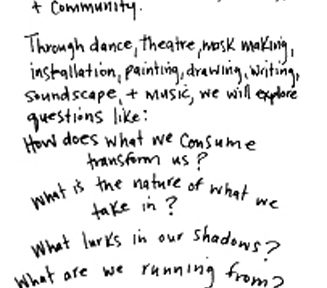 + Community.
Through dance, theatre, mask making,
installation, painting, drawing, writing,
soundscape, + music, we will explore
questions like:
How does what we consume
transform us?
What is the nature of what we
take in?
What lurks in our shadows?
What are we running from?